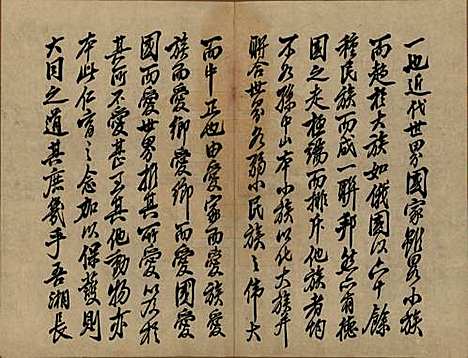 一也近代世界國家雖異小族
而趨於大族如俄國以六十餘
種民族而成一聯邦然亦有德
國之走極端而排斥他族者均
不如孫中山本小族以化大族并
聯合世界各弱小民族之偉大
而中正也由愛家而愛族愛
族而愛鄉愛鄉而愛國愛
國而愛世界推其所愛以及於
其所不愛甚至其他動物亦
本此仁育之念加以保護則
大同之道其庶幾乎吾湘長